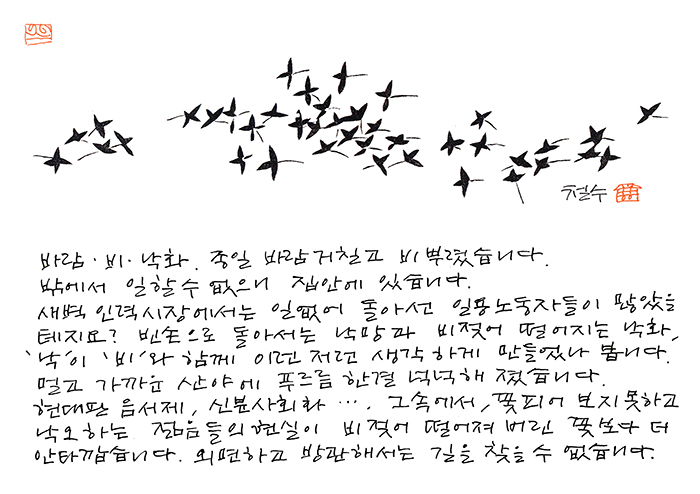 철수
바람·비·낙화. 종일 바람거칠고 비뿌렸습니다.
밖에서 일할 수 없으니 집안에 있습니다.
새벽 인력시장에서는 일없어 돌아선 일용노동자들이 많았을
테지요? 빈손으로 돌아서는 낙망과 비젖어 떨어지는 낙화,
'낙'이 '비'와 함께 이런 저런 생각하게 만들었나 봅니다.
멀고 가까운 산야에 푸르름 한결 넉넉해 졌습니다.
현대판 음서제, 신분사회화 …. 그속에서, 꽃피어 보지 못하고
낙오하는 젊음들의 현실이 비젖어 떨어져 버린 꽃보다 더
안타깝습니다. 외면하고 방관해서는 길을 찾을 수 없습니다.